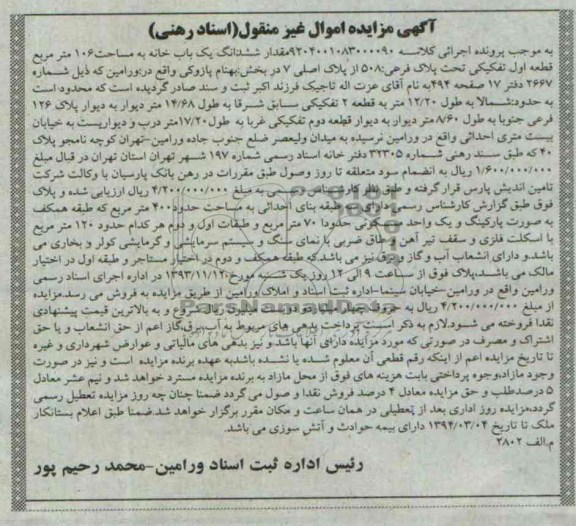 آگهی مزایده اموال غیر منقول(اسناد رهنی)
به موجب پرونده اجرائی کلاسه ۹۲۰۴۰۰۱۰۸۳۰۰۰۰۹۰مقدار ششدانگ یک باب خانه به مساحت۱۰۶ متر مربع
قطعه اول تفکیکی تحت پلاک فرعی:۵۰۸ از پلاک اصلی ۷ در بخش:بهنام پازوکی واقع در:ورامین که ذیل شماره
۲۶۶۷ دفتر ۱۷ صفحه ۴۹۴به نام آقای عزت اله تاجیک فرزند اکبر ثبت و سند صادر گردیده است که محدود است
به حدود:شمالا به طول ۱۲/۲۰ متر به قطعه ۲ تفکیکی مسابق شرقا به طول ۱۴/۶۸ متر دیوار به دیوار پلاک ۱۲۶
فرعی جنوبا به طول ۸/۶۰ متر دیوار به دیوار قطعه دوم تفکیکی غربا به طول۱۷/۲۰متر درب و دیواریست به خیابان
بیست متری احداثی واقع در ورامین نرسیده به میدان ولیعصر ضلع جنوب جاده ورامین-تهران کوچه نامجو پلاک
۴۰ که طبق سند رهنی شماره ۳۲۳۰۵ دفتر خانه اسناد رسمی شماره ۱۹۷ شهر تهران استان تهران در قبال مبلغ
۱/۶۰۰/۰۰۰/۰۰۰ ریال به انضمام سود متعلقه تا روز وصول طبق مقررات در رهن بانک پارسیان با وکالت شرکت
تامین اندیش پارس قرار گرفته و طبق نظر کارشناس رسمی به مبلغ ۴/۲۰۰/۰۰۰/۰۰۰ ریال ارزیابی شده و پلاک
فوق طبق گزارش کارشناس رسمی دارای سه طبقه بنای احداثی به مساحت حدود ۴۰۰ متر مربع که طبقه همکف
به صورت پارکینگ و یک واحد مسکونی حدودا ۷۰ متر مربع و طبقات اول و دوم هر کدام حدود ۱۲۰ متر مربع
با اسکلت فلزی و سقف تیر آهن و طاق ضربی با نمای سنگ و سیستم سرمایشی و گرمایشی کولر و بخاری می
باشد.و دارای انشعاب آب و گاز و برق نیز می باشد.که طبقه همکف و دوم در اختیار مستاجر و طبقه اول در اختیار
مالک می باشد.،پلاک فوق از ساعت ۹ الی ۱۲ روز یک شنبه مورخ ۱۳۹۳/۱۱/۱۲ در اداره اجرای اسناد رسمی
ورامین واقع در ورامین-خیابان سینما-اداره ثبت اسناد و املاک ورامین از طریق مزایده به فروش می رسد.مزایده
از مبلغ ۴/۲۰۰/۰۰۰/۰۰۰ ریال به حروف چهار میلیارد و دویست میلیون ریال شروع و به بالاترین قیمت پیشنهادی
نقدا فروخته می شود.لازم به ذکر است پرداخت بدهی های مربوط به آب،برق،گاز اعم از حق انشعاب و یا حق
اشتراک و مصرف در صورتی که مورد مزایده دارای آنها باشد و نیز بدهی های مالیاتی و عوارض شهرداری و غیره
تا تاریخ مزایده اعم از اینکه رقم قطعی آن معلوم شده یا نشده باشدبه عهده برنده مزایده است و نیز در صورت
وجود مازاد،وجوه پرداختی بابت هزینه های فوق از محل مازاد به برنده مزایده مسترد خواهد شد و نیم عشر معادل
۵ درصدطلب و حق مزایده معادل ۴ درصد فروش نقدا و صول می گردد ضمنا چنان چه روز مزایده تعطیل رسمی
گردد،مزایده روز اداری بعد از تعطیلی در همان ساعت و مکان مقرر برگزار خواهد شد.ضمنا طبق اعلام بستانکار
ملک تا تاریخ ۱۳۹۴/۰۳/۰۴ دارای بیمه حوادث و آتش سوزی می باشد.
م.الف ۲۸۰۲
رئیس اداره ثبت اسناد ورامین-محمد رحیم پور
ParsNamadData